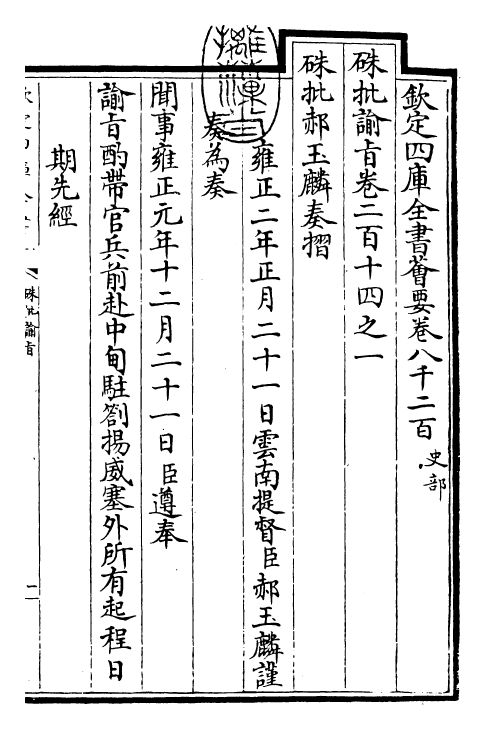 欽定四庫全書薈要卷八千二百 史部
硃批諭旨卷二百十四之一
硃批郝玉麟奏摺
雍正二年正月二十一日雲南提督臣郝玉麟謹
奏為奏
聞事雍正元年十二月二十一日臣遵奉
諭旨酌帶官兵前赴中甸駐劄揚威塞外所有起程日
期先經
硃批諭旨